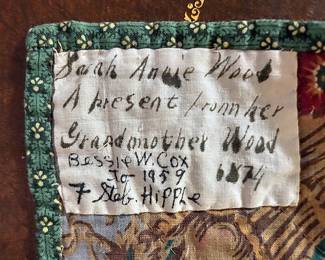 Sarah Annie Wood
A present from her
Grandmother Wood
1874
Bessie W. Cox
To 1959
F Steb. Hipple